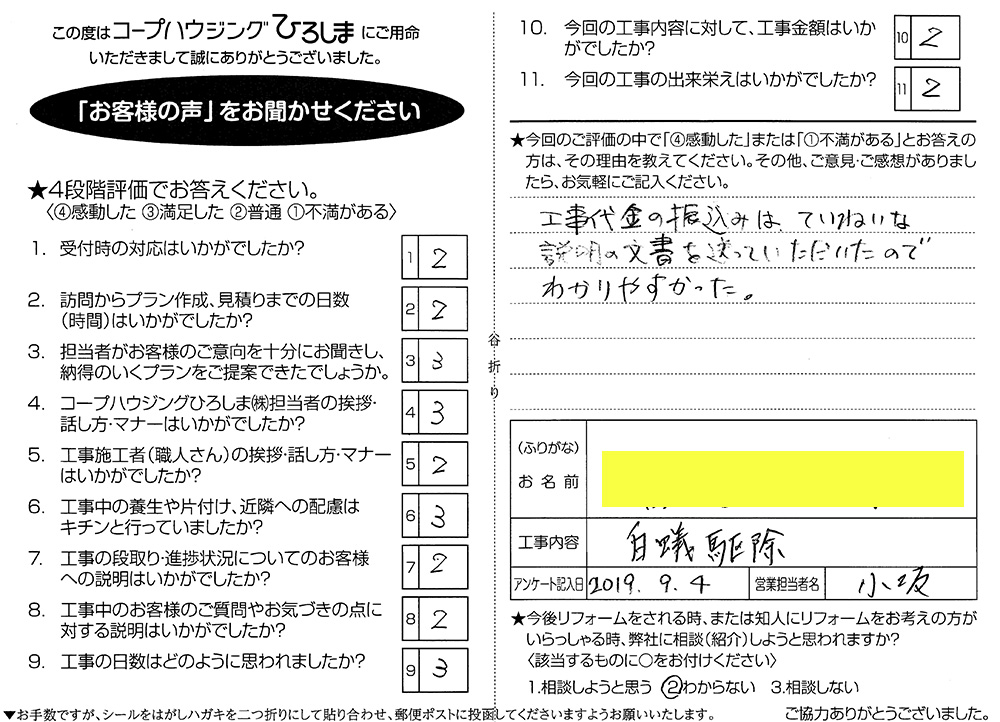 この度はコープハウジングひろしまにご用命
いただきまして誠にありがとうございました。
「お客様の声」をお聞かせください
★4段階評価でお答えください。
〈④感動した ③満足した ②普通 ①不満がある〉
1. 受付時の対応はいかがでしたか?
1 2
2. 訪問からプラン作成、見積りまでの日数
(時間)はいかがでしたか?
2 2
3. 担当者がお客様のご意向を十分にお聞きし、
納得のいくプランをご提案できたでしょうか。
3 3
4. コープハウジングひろしま㈱担当者の挨拶・
話し方・マナーはいかがでしたか?
4 3
5. 工事施工者(職人さん)の挨拶・話し方・マナー
はいかがでしたか?
5 2
6. 工事中の養生や片付け、近隣への配慮は
キチンと行っていましたか?
6 3
7. 工事の段取り・進捗状況についてのお客様
への説明はいかがでしたか?
7 2
8. 工事中のお客様のご質問やお気づきの点に
対する説明はいかがでしたか?
8 2
9. 工事の日数はどのように思われましたか?
9 3
▼お手数ですが、シールをはがしハガキを二つ折りにして貼り合わせ、郵便ポストに投函してくださいますようお願いいたします。
谷折り
10. 今回の工事内容に対して、工事金額はいか
がでしたか?
10 2
11. 今回の工事の出来栄えはいかがでしたか?
11 2
★今回のご評価の中で「④感動した」または「①不満がある」とお答えの
方は、その理由を教えてください。その他、ご意見・ご感想がありまし
たら、お気軽にご記入ください。
工事代金の振込みは、ていねいな
説明の文書を送っていただいたので
わかりやすかった。
(ふりがな)
お名前
工事内容 白蟻駆除
アンケート記入日 2019. 9. 4 営業担当者名 小坂
★今後リフォームをされる時、または知人にリフォームをお考えの方が
いらっしゃる時、弊社に相談(紹介)しようと思われますか?
〈該当するものに○をお付けください〉
1.相談しようと思う 2.わからない 3.相談しない
ご協力ありがとうございました。